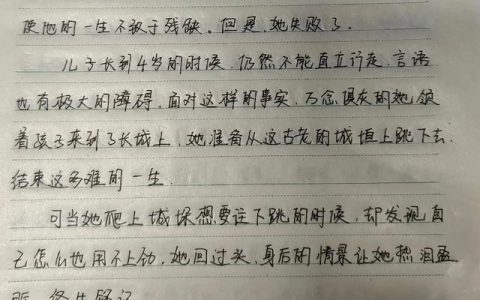 使他的一生不致于残缺。但是,她失败了.
儿子长到4岁的时候,仍然不能直立行走,言语
也有极大的障碍,面对这样的事实,万念俱灰的她领
着孩子来到了长城上,她准备从这古老的城垣上跳下去.
结束这多难的一生.
可当她爬上城垛想要往下跳的时候,却发现自
己怎么也用不上劲,她回过头,身后的情景让她热泪盈
眶,终生